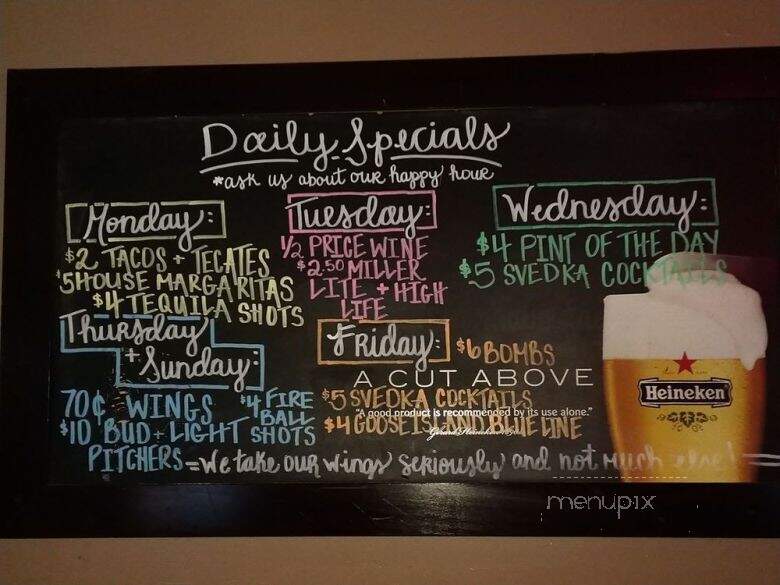 Daily Specials
*ask us about our happy hour
Monday:
$2 TACOS + TECATES
$5 HOUSE MARGARITAS
$4 TEQUILA SHOTS
Tuesday:
1/2 PRICE WINE
$2.50 MILLER
LITE + HIGH
LIFE
Wednesday:
$4 PINT OF THE DAY
$5 SVEDKA COCKTAILS
Thursday
+ Sunday:
70¢ WINGS
$10 BUD + LIGHT
PITCHERS
$4 FIRE
BALL
SHOTS
Friday:
$6 BOMBS
$5 SVEDKA COCKTAILS
$4 GOOSE ISLAND BLUE LINE
A CUT ABOVE
"A good product is recommended by its use alone."
Heineken
=We take our wings seriously and not much else!=
menupix